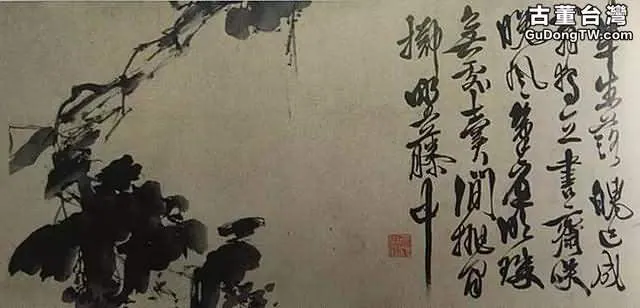 古董台灣
GuDongTW.com
半生落魄已成
翁獨立書齋嘯
晚風筆底明珠
無處賣閒拋閒
擲野藤中